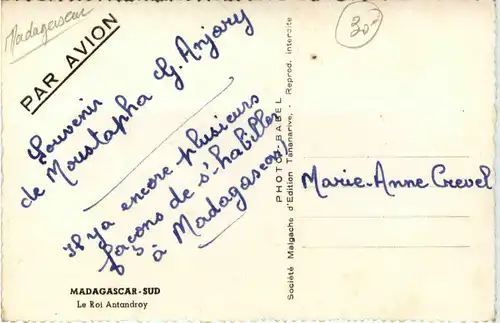 Madagascar
PAR AVION
30-
Souvenir
de Moustapha G. Anjary
Il y a encore plusieurs
façons de s'habiller
à Madagascar
Marie-Anne Crevel
PHOTO-BABEL
Société Malgache d'Edition Tananarive, Reprod. interdite
MADAGASCAR-SUD
Le Roi Antandroy